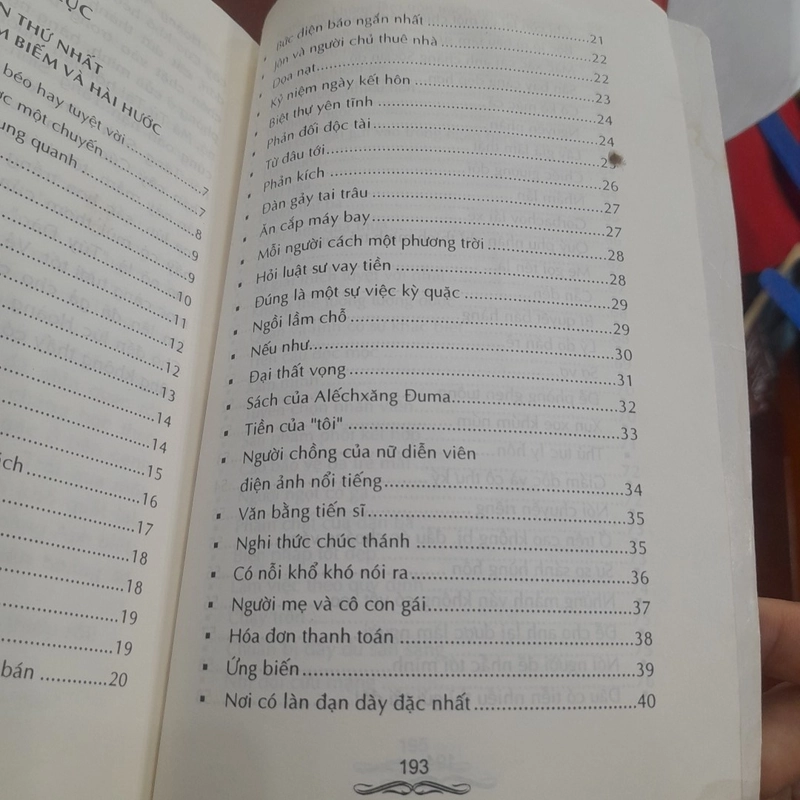 ỤC
N THỨ NHẤT
M BIẾM VÀ HÀI HƯỚC
béo hay tuyệt vời...............7
ợc một chuyến...............7
ung quanh...............8
...............9
...............9
...............10
...............11
...............12
...............12
...............13
...............14
...............14
...............15
ích...............16
...............17
...............18
...............18
...............19
...............19
bán ............20
Bức điện báo ngắn nhất...............21
▪ Jôn và người chủ thuê nhà...............22
▪ Dọa nạt...............22
▪ Kỷ niệm ngày kết hôn...............23
▪ Biệt thự yên tĩnh...............24
▪ Phản đối độc tài...............24
▪ Từ đâu tới...............25
▪ Phản kích...............26
▪ Đàn gảy tai trâu...............27
▪ Ăn cắp máy bay...............27
▪ Mỗi người cách một phương trời...............28
▪ Hỏi luật sư vay tiền...............28
▪ Đúng là một sự việc kỳ quặc...............29
▪ Ngồi lầm chỗ...............29
▪ Nếu như...............30
▪ Đại thất vọng...............31
▪ Sách của Alếchxăng Đuma...............32
▪ Tiền của "tôi"...............33
▪ Người chồng của nữ diễn viên
điện ảnh nổi tiếng...............34
▪ Văn bằng tiến sĩ...............35
▪ Nghi thức chúc thánh...............35
▪ Có nỗi khổ khó nói ra...............36
▪ Người mẹ và cô con gái...............37
▪ Hóa đơn thanh toán...............38
▪ Ứng biến...............39
▪ Nơi có làn đạn dày đặc nhất...............40
193